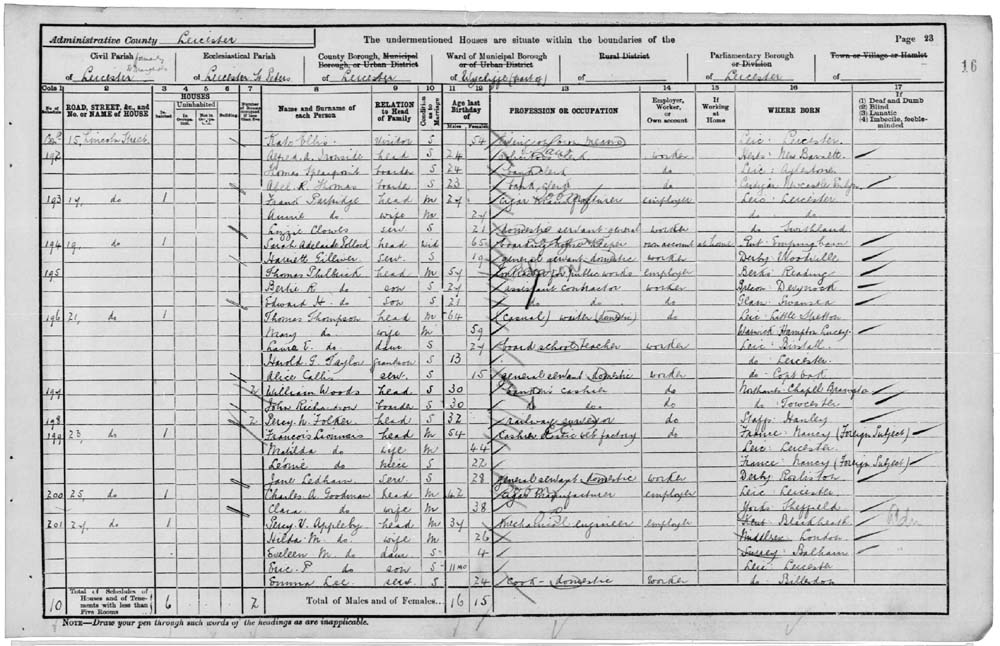 Administrative County Leicester The undermentioned Houses are situate within the boundaries of the Page 23
16
Civil Parish Ecclesiastical Parish County Borough, Municipal Borough, or Urban District Ward of Municipal Borough or of Urban District Rural District Parliamentary Borough or Division Town or Village or Hamlet
of Leicester of Leicester St Peters of Leicester of Wycliffe (part of) of of Leicester of
Cols 1 2 3 4 5 6 7 8 9 10 11 12 13 14 15 16 17
No. of Schedule ROAD, STREET, &c., and No. or NAME of HOUSE HOUSES Inhabited Uninhabited In Occupation Not in Occupation Building Number of Rooms occupied if less than five Name and Surname of each Person RELATION to Head of Family Condition as to Marriage Age last Birthday of Males Females PROFESSION OR OCCUPATION Employer, Worker, or Own account If Working at Home WHERE BORN If (1) Deaf and Dumb (2) Blind (3) Lunatic (4) Imbecile, feeble-minded
15, Lincoln Street Kate Ellis Visitor S 54 Living on own means Leic: Leicester
192 Alfred Ironside head S 24 clerk worker Herts: New Barnett
Thomas boarder S 24 Bank Clerk do Leic: Aylestone
Abel R. Thomas boarder S 23 bank clerk do Cardigan Newcastle Emlyn
193 17, do 1 Frank Partridge head M 27 cigar manufacturer employer Leic: Leicester
Annie do wife M 27 do do
Lizzie Clowes serv. S 21 domestic servant general worker do Swithland
194 19, do 1 Sarah Adelaide Pollock head wid 65 boarding house keeper own account at home Rut: Empingham
Harriett Gilliver Serv. S 19 general servant domestic worker Derby Woodville
195 Thomas Philbrick head M 57 contractor for public works employer Berks Reading
Bertie R. do son S 27 assistant contractor worker Brecon: Devynock
Edward H. do Son S 21 do do do Glam: Swansea
196 21, do 1 Thomas Thompson head M 64 (casual) waiter (domestic) Leic: Little Stretton
Mary do wife M 59 Warwick Hampton Lucy
Laura E. do daur S 27 board school teacher worker Leic: Birstall
Harold G. Taylor grandson S 13 do Leicester
Alice Callis serv. S 15 general servant domestic worker do
197 2 William Woods head S 30 bankers cashier do Northants Chapel Brampton
John Richardson boarder S 30 do do do do Towcester
198 2 Percy N. Folker head S 32 railway surveyor do Staffs Hanley
199 23, do 1 Francois Lionnais head M 54 cashier elastic web factory do France Nancy (Foreign Subject)
Matilda do wife M 44 Leic: Leicester
Leonie do niece S 22 France Nancy (Foreign Subject)
Jane Ledham Serv. S 28 general servant domestic worker Derby Rosliston
200 25, do 1 Charles A. Goodman head M 42 cigar manufacturer employer Leic Leicester
Clara do wife M 38 Yorks Sheffield
201 27, do 1 Percy V. Appleby head M 37 Mechanical engineer employer Kent Blackheath
Hilda M. do wife M 26 Middlsex London
Eveleen M. do daur S 4 Surrey Balham
Eric P do son S 11 mo Leic: Leicester
Emma Lee serv. S 24 Cook - domestic worker do Billesdon
10 Total of Schedules of Houses and of Tenements with less than Five Rooms 6 2 Total of Males and of Females... 16 15
NOTE—Draw your pen through such words of the headings as are inapplicable.